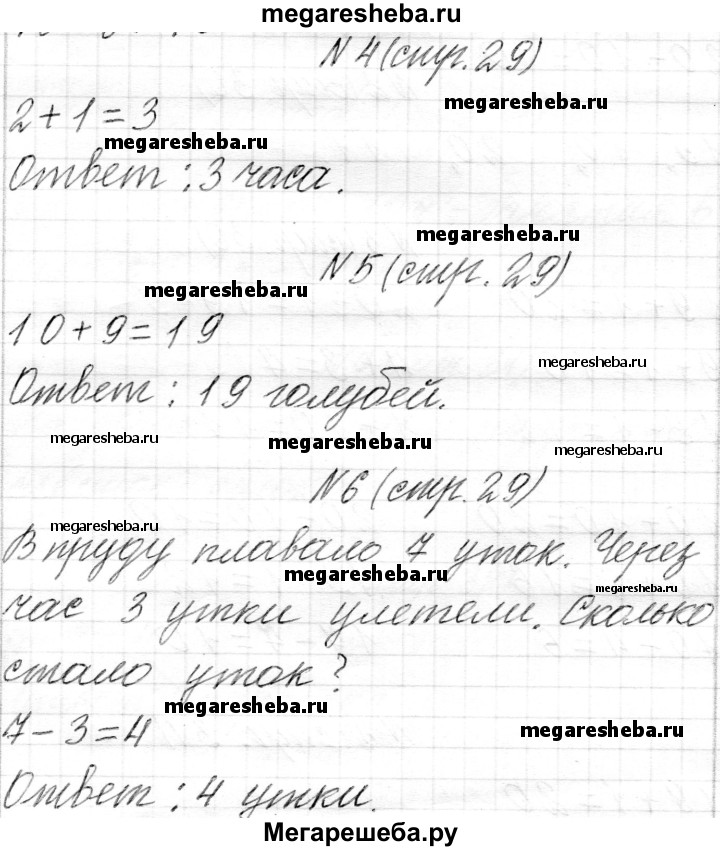 megaresheba.ru
N 4 (стр. 29)
megaresheba.ru
2 + 1 = 3
megaresheba.ru
Ответ : 3 часа.
megaresheba.ru
N 5 (стр. 29)
megaresheba.ru
10 + 9 = 19
megaresheba.ru
Ответ : 19 голубей.
megaresheba.ru
megaresheba.ru
megaresheba.ru
N 6 (стр. 29)
megaresheba.ru
В пруду плавало 7 уток. Через
megaresheba.ru
megaresheba.ru
час 3 утки улетели. Сколько
стало уток?
megaresheba.ru
7 - 3 = 4
megaresheba.ru
Ответ : 4 утки.
Мегарешеба.ру